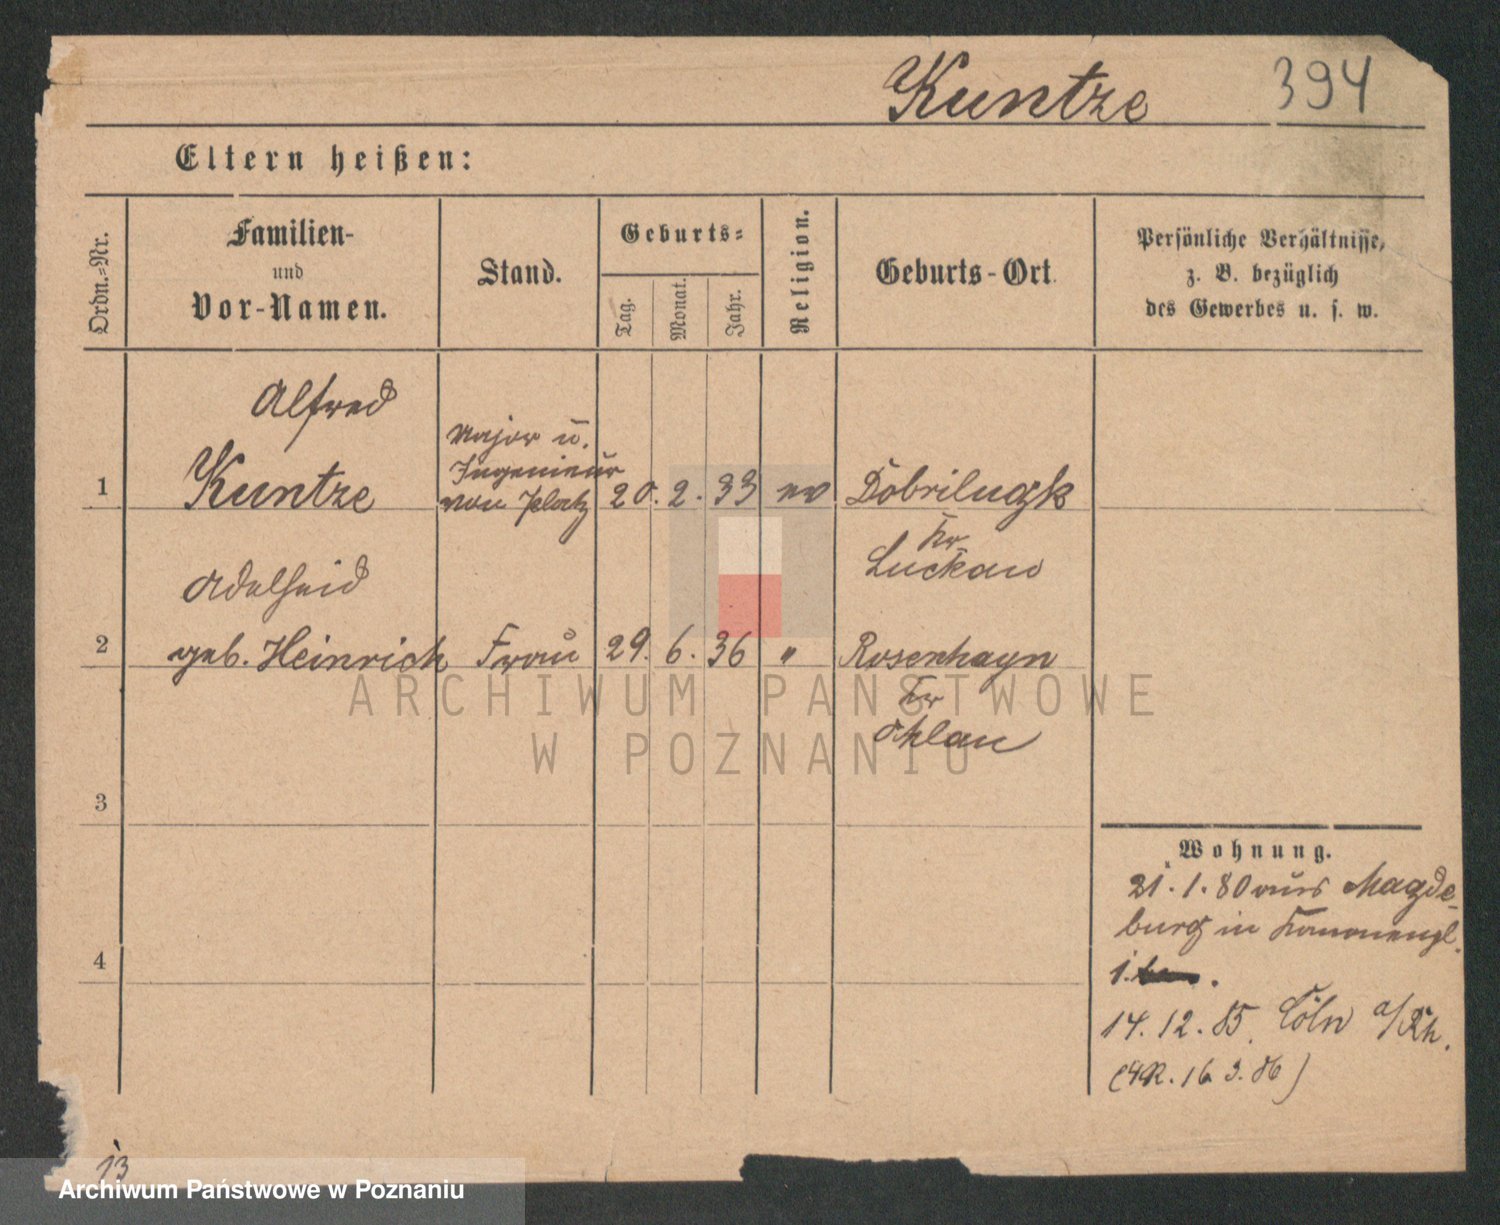 Kuntze 394
Eltern heißen:
Ordn.-Nr.
Familien-
und
Vor-Namen.
Stand.
Geburts-
Tag.
Monat.
Jahr.
Religion.
Geburts-Ort.
Persönliche Verhältnisse,
z. B. bezüglich
des Gewerbes u. s. w.
Alfred
1 Kuntze
Major u.
Ingenieur
von Platz
20. 2. 33 ev Dobrilugk
Kr
Luckau
Adelheid
2 geb. Heinrich Frau 29. 6. 36 " Rosenhayn
Kr
Ohlau
3
4
Wohnung.
21. 1. 80 aus Magde-
burg in
1.
14. 12. 85. Cöln a/Rh.
16 3. 86)
13
ARCHIWUM PAŃSTWOWE
W POZNANIU
Archiwum Państwowe w Poznaniu